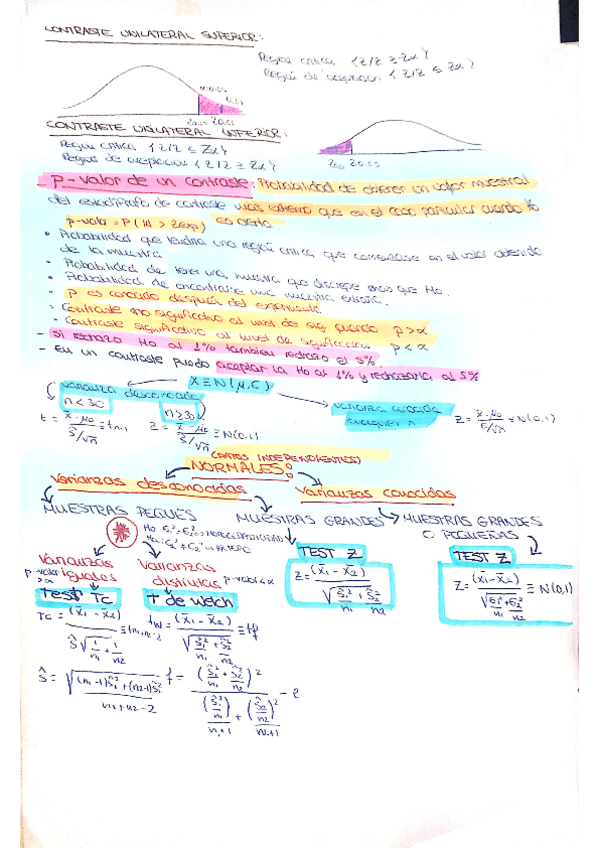 CONTRASTE UNILATERAL SUPERIOR:
Región crítica {Z/Z ≥ Zα}
Región de aceptación {Z/Z ≤ Zα}
CONTRASTE UNILATERAL INFERIOR:
Región crítica {Z/Z ≤ Zα}
Región de aceptación {Z/Z ≥ Zα}
p-valor de un contraste: Probabilidad de obtener un valor muestral
del estadístico de contraste más extremo que en el caso particular cuando Ho
p-valor = P(|d| > Zexp) es cierto.
• Probabilidad que tendría una región crítica que comenzase en el valor obtenido
de la muestra
• Probabilidad de tener una muestra que discrepe más que Ho.
• Probabilidad de encontrarse una muestra extraña.
- P es conocido después del experimento
- Contraste no significativo al nivel de sig cuando p > α
- Contraste significativo al nivel de significación p < α
- Si rechazo Ho al 1% también rechazo el 5%
- En un contraste puedo aceptar la Ho al 1% y rechazarla al 5%
X ≡ N(μ,σ)
varianza desconocida
n < 30
n ≥ 30
varianza conocida
cualquier n
t = x̄-μo / Ŝ/√n ≡ tn-1
Z = x̄-μo / Ŝ/√n ≡ N(0,1)
Z = x̄-μo / σ/√n ≡ N(0,1)
(DATOS INDEPENDIENTES)
NORMALES:
Varianzas desconocidas
Varianzas conocidas
MUESTRAS PEQUES
MUESTRAS GRANDES
MUESTRAS GRANDES
O PEQUEÑAS
Varianzas
iguales
p-valor > α
Varianzas
distintas p-valor < α
TEST Z
TEST Z
Test Tc
T de Welch
Z = (x̄1 - x̄2) / √(Ŝ1²/n1 + Ŝ2²/n2)
Z = (x̄1 - x̄2) / √(σ1²/n1 + σ2²/n2) ≡ N(0,1)
Tc = (x̄1 - x̄2) / Ŝ√(1/n1 + 1/n2) ≡ tn1+n2-2
tw = (x̄1 - x̄2) / √(Ŝ1²/n1 + Ŝ2²/n2) ≡ tf
Ŝ = √((n1-1)Ŝ1² + (n2-1)Ŝ2² / n1+n2-2)
f = (Ŝ1²/n1 + Ŝ2²/n2)² / ((Ŝ1²/n1)²/n1+1 + (Ŝ2²/n2)²/n2+1) - 2